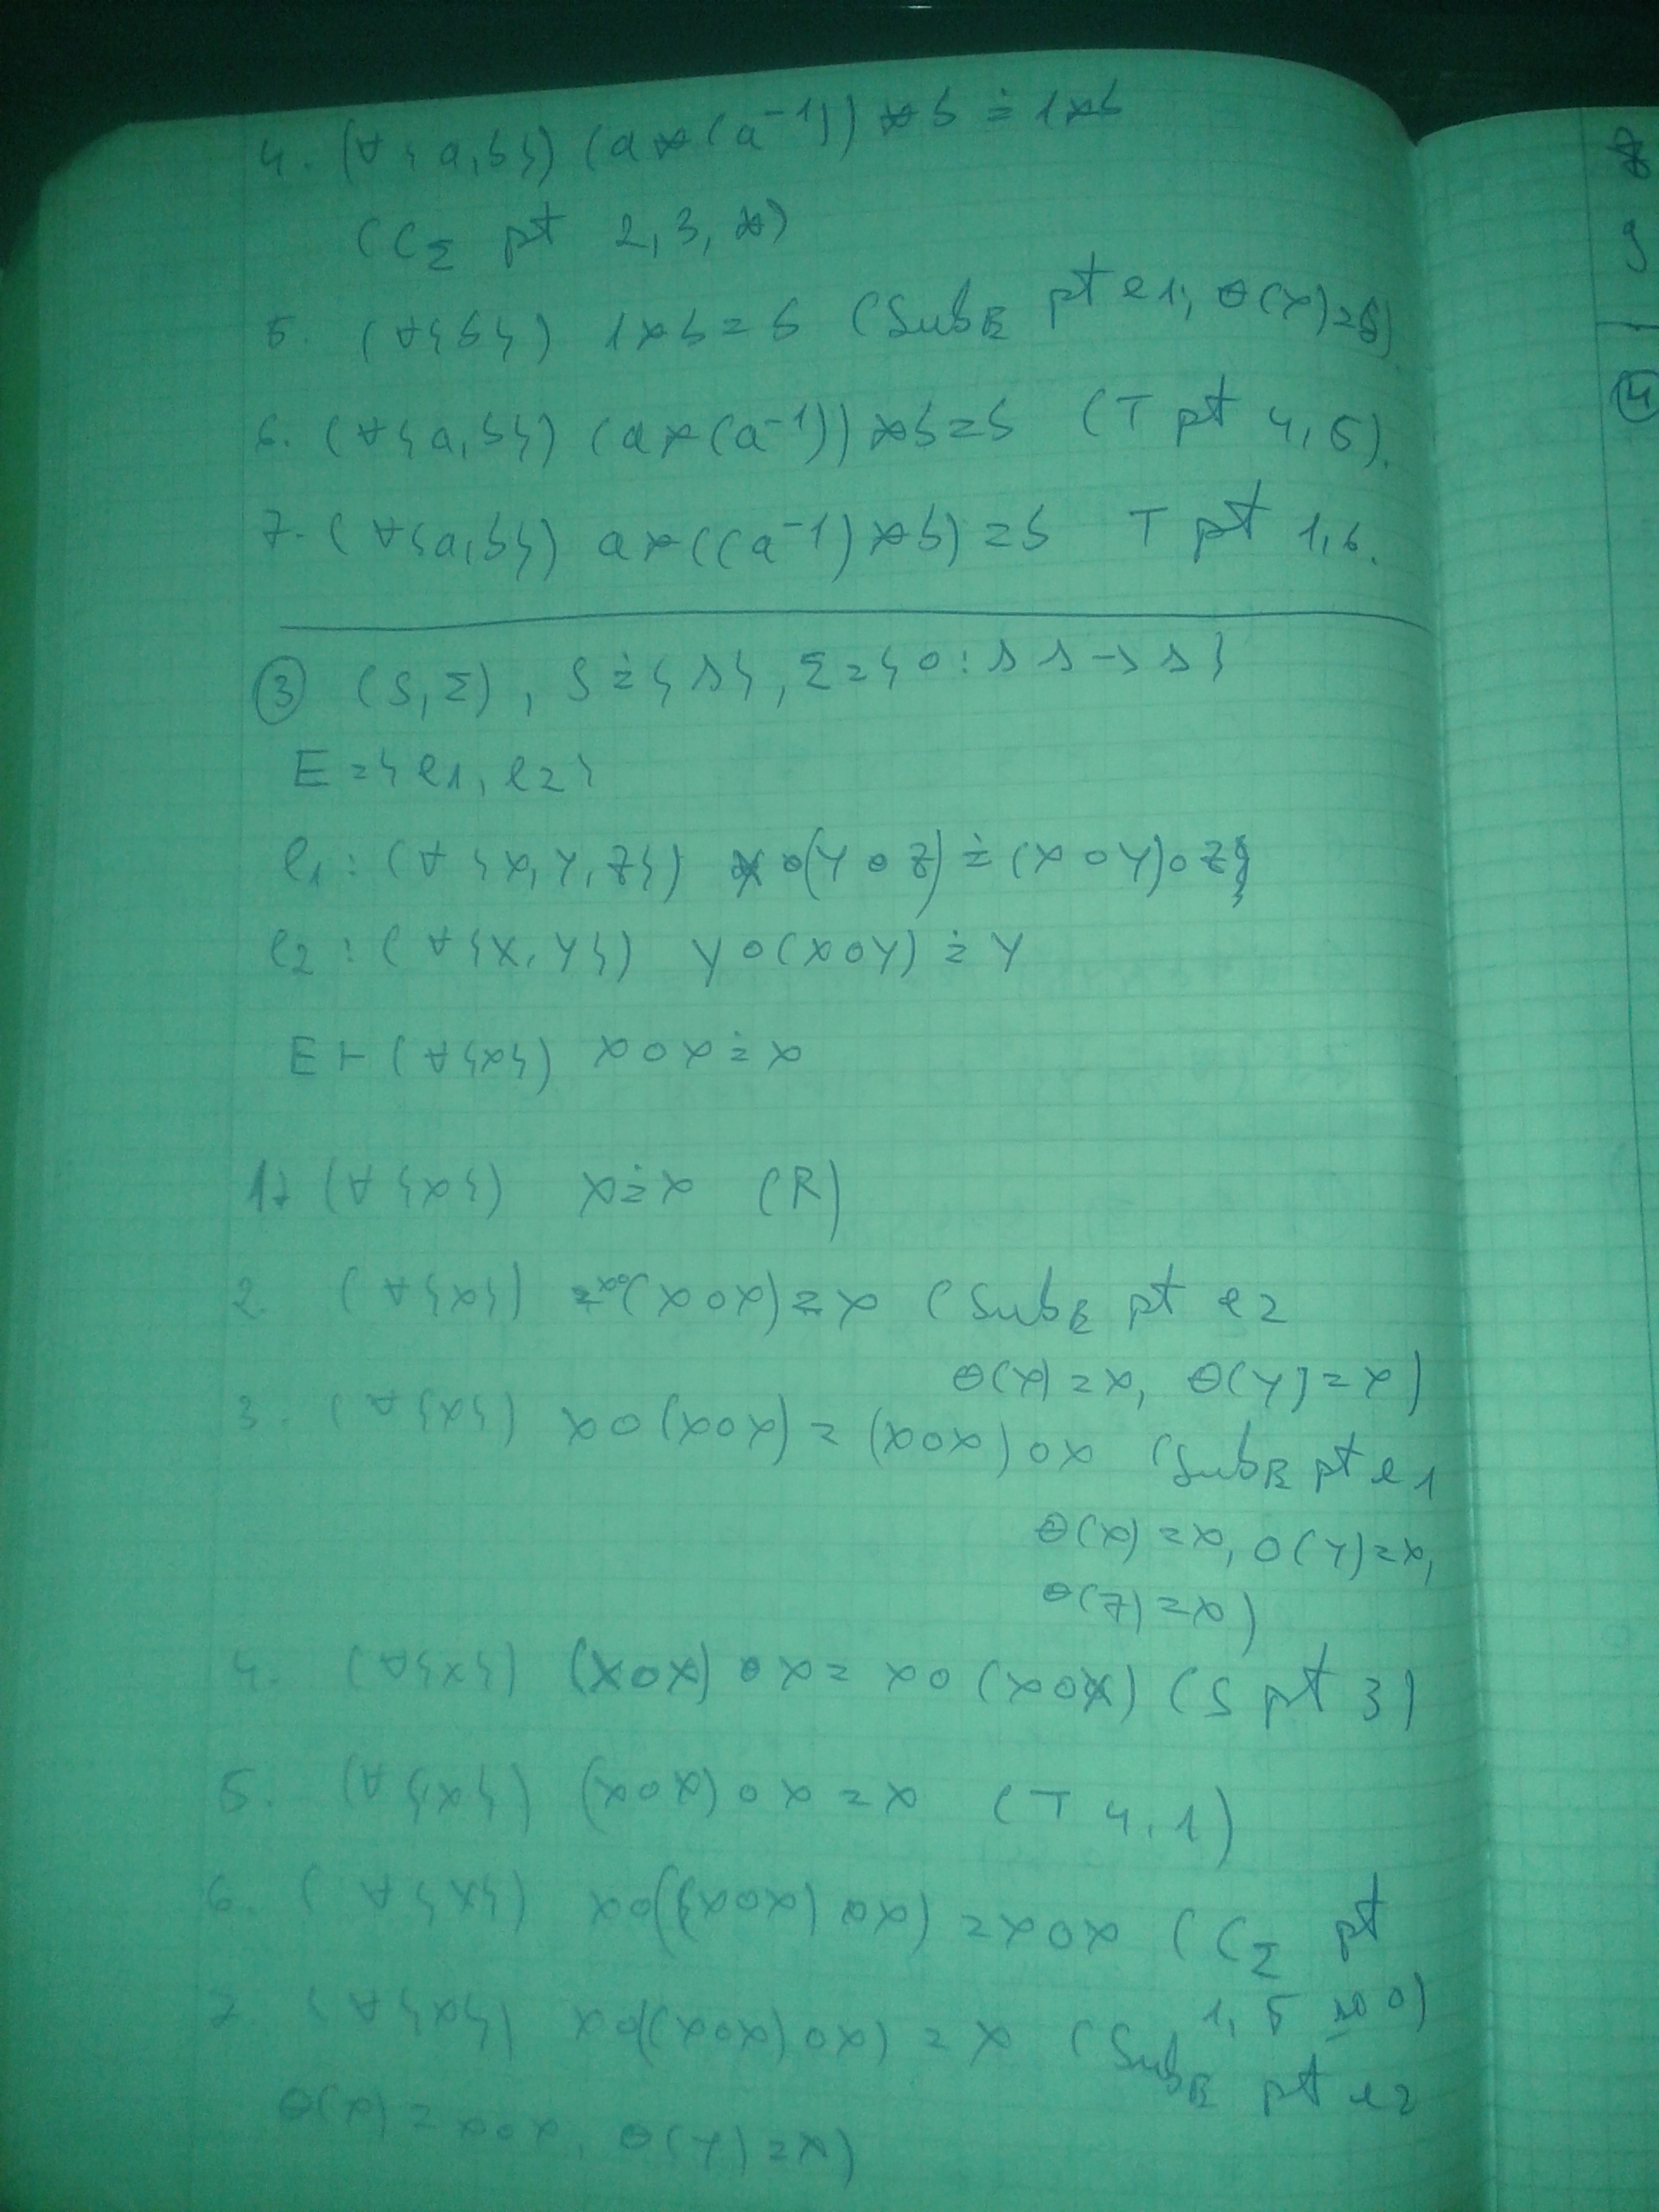 4. (∀{a,b}) (a*(a⁻¹))*b ≐ 1*b
(C_Σ pt 2, 3, *)
5. (∀{b}) 1*b = b (Sub_E pt e1, θ(x)=b)
6. (∀{a,b}) (a*(a⁻¹))*b=b (T pt 4,5).
7. (∀{a,b}) a*((a⁻¹)*b)=b T pt 1,6.
③ (S,Σ), S≐{s}, Σ={o: s s→s}
E={e1, e2}
e1: (∀{x,y,z}) x o(y o z) ≐ (x o y) o z}
e2: (∀{x,y}) y o (x o y) ≐ y
E ⊢ (∀{x}) x o x ≐ x
1. (∀{x}) x≐x (R)
2. (∀{x}) xo(xox)=x (Sub_E pt e2
θ(x)=x, θ(y)=x)
3. (∀{x}) xo(xox) = (xox)ox (Sub_E pt e1
θ(x)=x, θ(y)=x,
θ(z)=x)
4. (∀{x}) (xox)ox = xo(xox) (S pt 3)
5. (∀{x}) (xox)ox = x (T 4,1)
6. (∀{x}) xo((xox)ox) = xox (C_Σ pt
1, 5 o)
7. (∀{x}) xo((xox)ox) = x (Sub_E pt e2
θ(x) = xox, θ(y)=x)
④